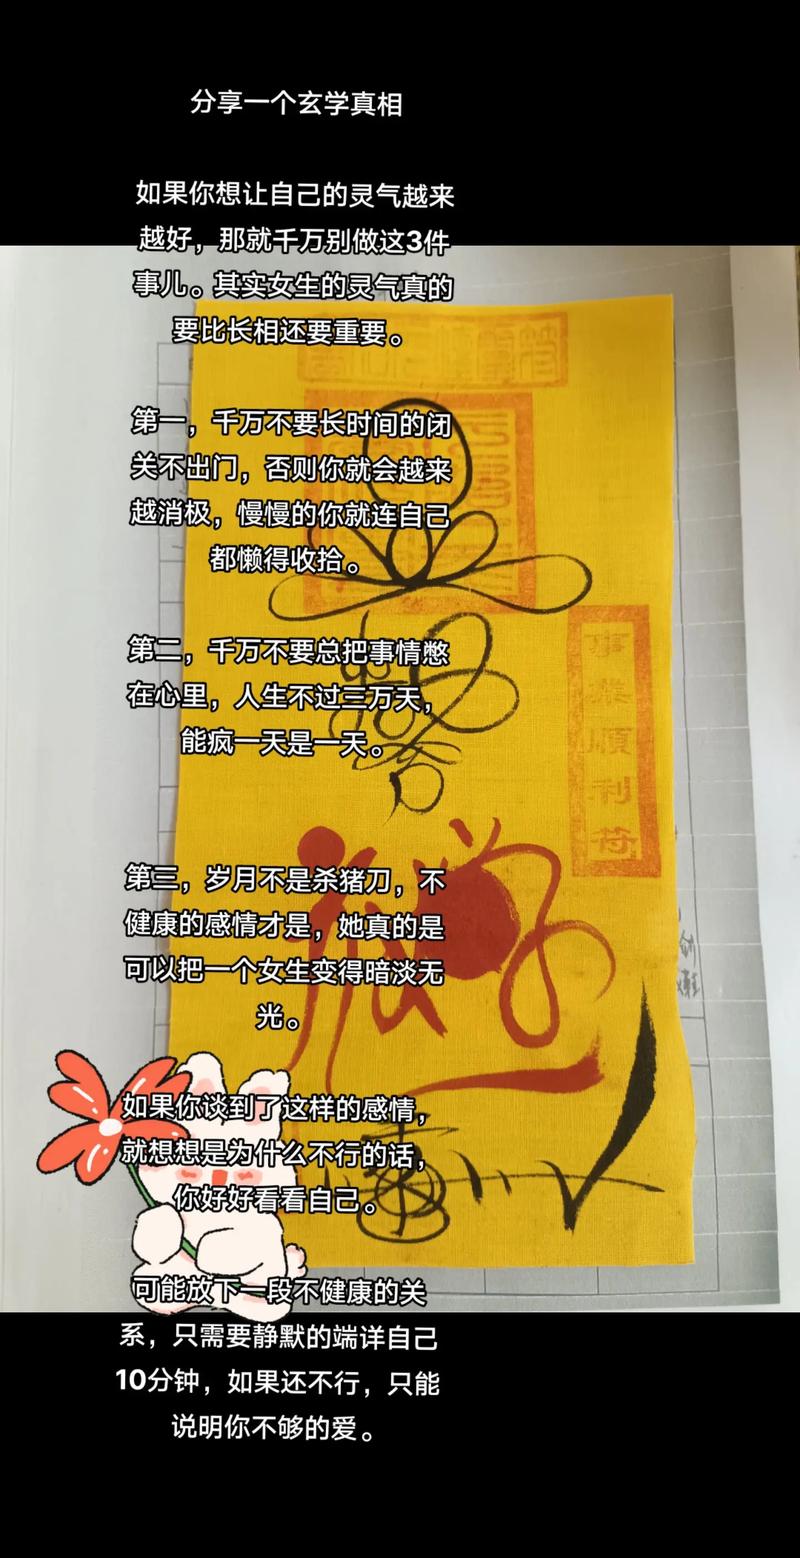 分享一个玄学真相
如果你想让自己的灵气越来
越好，那就千万别做这3件
事儿。其实女生的灵气真的
要比长相还要重要。
第一，千万不要长时间的闭
关不出门，否则你就会越来
越消极，慢慢的你就连自己
都懒得收拾。
第二，千万不要总把事情憋
在心里，人生不过三万天，
能疯一天是一天。
第三，岁月不是杀猪刀，不
健康的感情才是，她真的是
可以把一个女生变得暗淡无
光。
如果你谈到了这样的感情，
就想想是为什么不行的话，
你好好看看自己。
可能放下一段不健康的关
系，只需要静默的端详自己
10分钟，如果还不行，只能
说明你不够的爱。
事業順利符